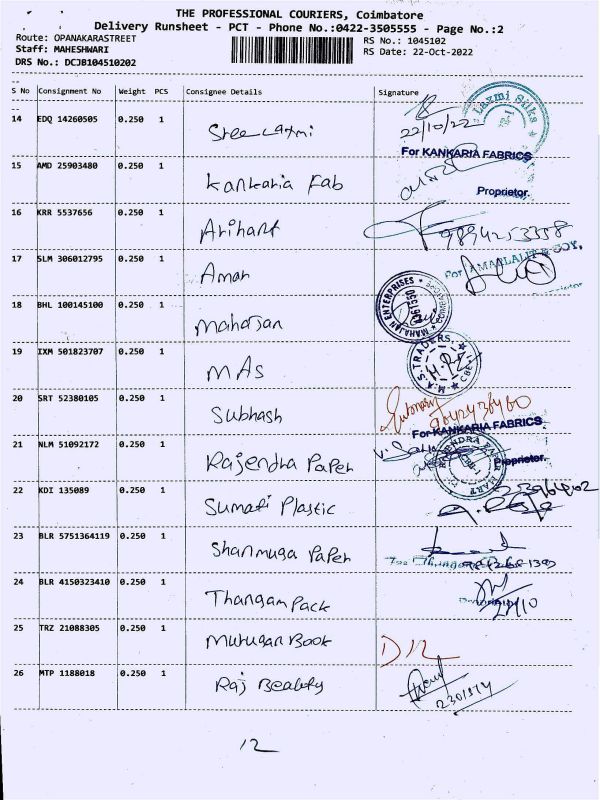 THE PROFESSIONAL COURIERS, Coimbatore
Delivery Runsheet - PCT - Phone No.:0422-3505555 - Page No.:2
Route: OPANAKARASTREET
RS No.: 1045102
Staff: MAHESHWARI
RS Date: 22-Oct-2022
DRS No.: DCJB104510202
S No Consignment No Weight PCS Consignee Details Signature
14 EDQ 14260505 0.250 1 Sree Laxmi 22/10/22
Laxmi Silks
For KANKARIA FABRICS
15 AMD 25903480 0.250 1 Kankaria Fab
Proprietor.
16 KRR 5537656 0.250 1 Arihant 9894253358
17 SLM 306012795 0.250 1 Aman
For AMARLALIT & COY.
18 BHL 100145100 0.250 1 Mahajan
MAHAJAN ENTERPRISES
19 IXM 501823707 0.250 1 MAS
M.A.S. TRADERS
20 SRT 52380105 0.250 1 Subhash
For KANKARIA FABRICS
21 NLM 51092172 0.250 1 Rajendra Paper
Proprietor.
22 KDI 135089 0.250 1 Sumati Plastic
23 BLR 5751364119 0.250 1 Shanmuga Paper
24 BLR 4150323410 0.250 1 Thangam Pack
25 TRZ 21088305 0.250 1 Murugan Book
26 MTP 1188018 0.250 1 Raj Beauty
12